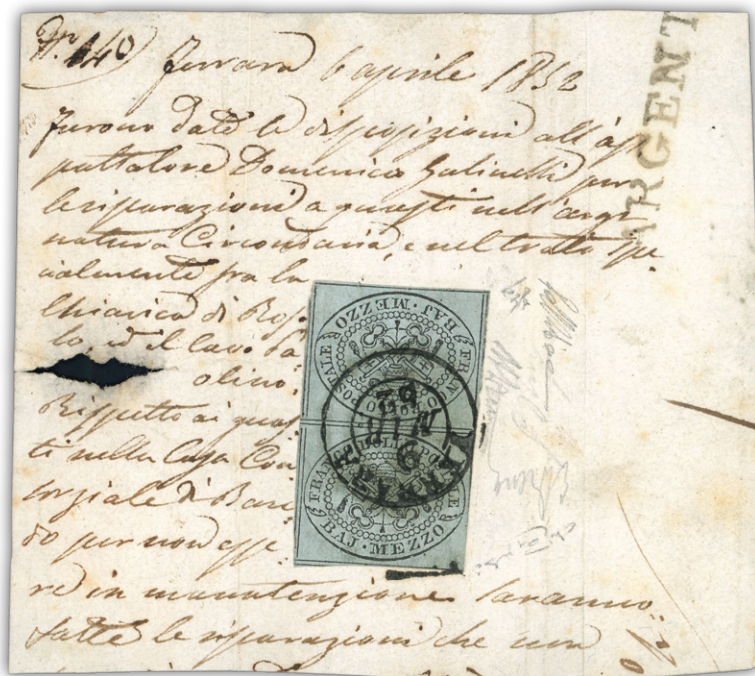 N. 140 Ferrara 6 aprile 1852
Furono date le disposizioni all'ap
paltatore Domenico Galinelli per
le riparazioni a guasti nell'argi
natura Circondaria, e nel trato spe
cialmente fra la
Chiavica di Ros
lo, ed il Cavo Ba
olino.
Rispetto ai guas
ti nella Casa Con
sorziale di Ban
do per non esse
re in manutenzione saranno
fatte le riparazioni che non
ARGENT
FRANCO BOLLO POSTALE
BAJ. MEZZO
FRANCO BOLLO POSTALE
BAJ. MEZZO
FERRARA
6
52